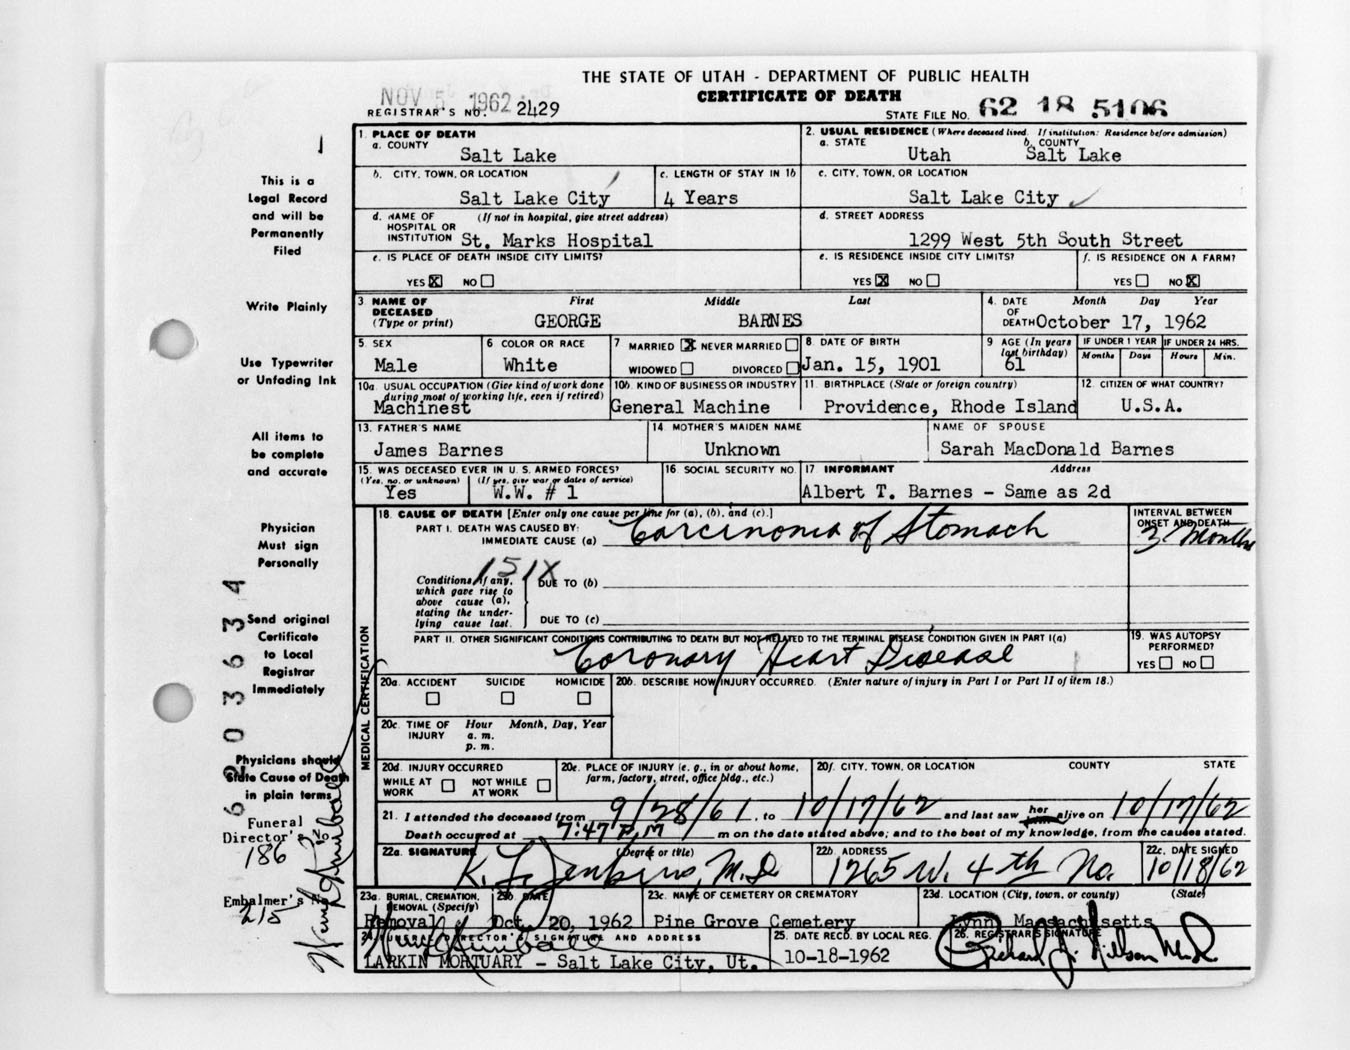 THE STATE OF UTAH - DEPARTMENT OF PUBLIC HEALTH
CERTIFICATE OF DEATH
NOV 5 1962
REGISTRAR'S NO. 2429
STATE FILE NO. 62 18 5106
This is a
Legal Record
and will be
Permanently
Filed
Write Plainly
Use Typewriter
or Unfading Ink
All items to
be complete
and accurate
Physician
Must sign
Personally
Send original
Certificate
to Local
Registrar
Immediately
Physicians should
State Cause of Death
in plain terms
Funeral
Director's No.
186
Embalmer's No.
215
6 2 0 3 6 3 3 4
1. PLACE OF DEATH
a. COUNTY
Salt Lake
2. USUAL RESIDENCE (Where deceased lived. If institution: Residence before admission)
a. STATE b. COUNTY
Utah Salt Lake
b. CITY, TOWN, OR LOCATION
Salt Lake City
c. LENGTH OF STAY IN 1b
4 Years
c. CITY, TOWN, OR LOCATION
Salt Lake City
d. NAME OF (If not in hospital, give street address)
HOSPITAL OR
INSTITUTION St. Marks Hospital
d. STREET ADDRESS
1299 West 5th South Street
e. IS PLACE OF DEATH INSIDE CITY LIMITS?
YES X NO
e. IS RESIDENCE INSIDE CITY LIMITS?
YES X NO
f. IS RESIDENCE ON A FARM?
YES NO X
3 NAME OF DECEASED (Type or print)
First Middle Last
GEORGE BARNES
4. DATE OF DEATH Month Day Year
October 17, 1962
5. SEX
Male
6 COLOR OR RACE
White
7 MARRIED X NEVER MARRIED
WIDOWED DIVORCED
8. DATE OF BIRTH
Jan. 15, 1901
9 AGE (In years last birthday)
61
IF UNDER 1 YEAR IF UNDER 24 HRS.
Months Days Hours Min.
10a. USUAL OCCUPATION (Give kind of work done
during most of working life, even if retired)
Machinest
10b. KIND OF BUSINESS OR INDUSTRY
General Machine
11. BIRTHPLACE (State or foreign country)
Providence, Rhode Island
12. CITIZEN OF WHAT COUNTRY?
U.S.A.
13. FATHER'S NAME
James Barnes
14 MOTHER'S MAIDEN NAME
Unknown
NAME OF SPOUSE
Sarah MacDonald Barnes
15. WAS DECEASED EVER IN U. S. ARMED FORCES?
(Yes, no, or unknown) (If yes, give war or dates of service)
Yes W.W. # 1
16 SOCIAL SECURITY NO.
17 INFORMANT Address
Albert T. Barnes - Same as 2d
18. CAUSE OF DEATH [Enter only one cause per line for (a), (b), and (c).]
PART I. DEATH WAS CAUSED BY:
IMMEDIATE CAUSE (a) Carcinoma of Stomach
INTERVAL BETWEEN
ONSET AND DEATH
3 Months
151X
Conditions, if any,
which gave rise to
above cause (a),
stating the under-
lying cause last.
DUE TO (b)
DUE TO (c)
PART II. OTHER SIGNIFICANT CONDITIONS CONTRIBUTING TO DEATH BUT NOT RELATED TO THE TERMINAL DISEASE CONDITION GIVEN IN PART I(a)
Coronary Heart Disease
19. WAS AUTOPSY
PERFORMED?
YES NO
MEDICAL CERTIFICATION
20a. ACCIDENT SUICIDE HOMICIDE
20b. DESCRIBE HOW INJURY OCCURRED. (Enter nature of injury in Part I or Part II of item 18.)
20c. TIME OF INJURY
Hour Month, Day, Year
a. m.
p. m.
20d. INJURY OCCURRED
WHILE AT WORK NOT WHILE AT WORK
20e. PLACE OF INJURY (e. g., in or about home,
farm, factory, street, office bldg., etc.)
20f. CITY, TOWN, OR LOCATION COUNTY STATE
21. I attended the deceased from 9/28/61, to 10/17/62 and last saw her alive on 10/17/62
Death occurred at 7:47 P.M m on the date stated above; and to the best of my knowledge, from the causes stated.
22a. SIGNATURE (Degree or title)
K. L. Jenkins, M.D.
22b. ADDRESS
1265 W. 4th No.
22c. DATE SIGNED
10/18/62
23a. BURIAL, CREMATION,
REMOVAL (Specify)
Removal
23b. DATE
Oct. 20, 1962
23c. NAME OF CEMETERY OR CREMATORY
Pine Grove Cemetery
23d. LOCATION (City, town, or county) (State)
Lynn, Massachusetts
24. FUNERAL DIRECTOR'S SIGNATURE AND ADDRESS
LARKIN MORTUARY - Salt Lake City, Ut.
25. DATE RECD. BY LOCAL REG.
10-18-1962
26. REGISTRAR'S SIGNATURE